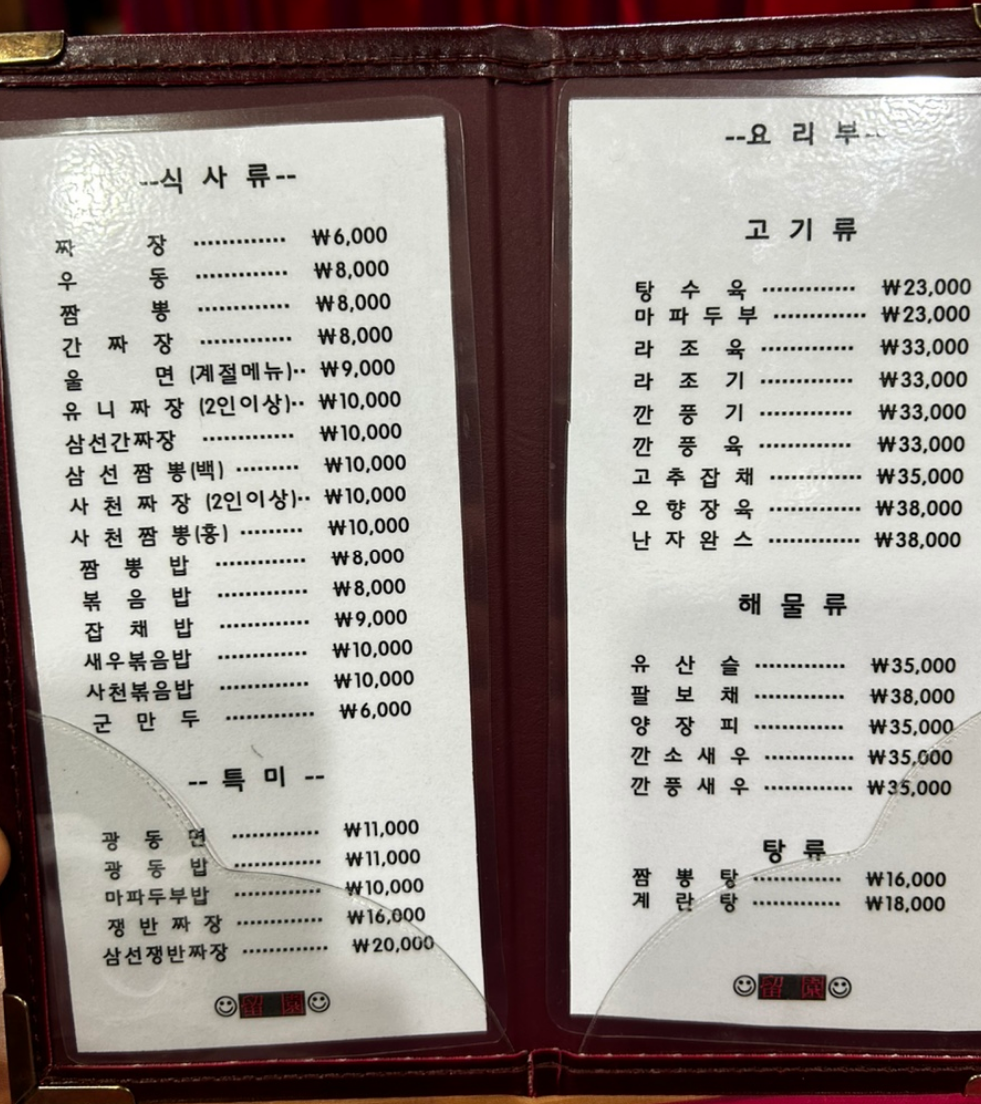 --식 사 류--
짜 장 ············· ₩6,000
우 동 ············· ₩8,000
짬 뽕 ············· ₩8,000
간 짜 장 ············· ₩8,000
울 면 (계절메뉴)·· ₩9,000
유 니 짜 장 (2인이상)·· ₩10,000
삼선간짜장 ············· ₩10,000
삼 선 짬 뽕(백) ········· ₩10,000
사 천 짜 장 (2인이상)·· ₩10,000
사 천 짬 뽕(홍) ·········· ₩10,000
짬 뽕 밥 ············· ₩8,000
볶 음 밥 ············· ₩8,000
잡 채 밥 ············· ₩9,000
새우볶음밥 ············· ₩10,000
사천볶음밥 ············· ₩10,000
군 만 두 ············· ₩6,000
-- 특 미 --
광 동 면 ············· ₩11,000
광 동 밥 ············· ₩11,000
마파두부밥 ············· ₩10,000
쟁 반 짜 장 ············· ₩16,000
삼선쟁반짜장 ············· ₩20,000
☺留 園☺
--요 리 부--
고 기 류
탕 수 육 ············· ₩23,000
마 파 두 부 ············· ₩23,000
라 조 육 ············· ₩33,000
라 조 기 ············· ₩33,000
깐 풍 기 ············· ₩33,000
깐 풍 육 ············· ₩33,000
고 추 잡 채 ············· ₩35,000
오 향 장 육 ············· ₩38,000
난 자 완 스 ············· ₩38,000
해 물 류
유 산 슬 ············· ₩35,000
팔 보 채 ············· ₩38,000
양 장 피 ············· ₩35,000
깐 소 새 우 ············· ₩35,000
깐 풍 새 우 ············· ₩35,000
탕 류
짬 뽕 탕 ············· ₩16,000
계 란 탕 ············· ₩18,000
☺留 園☺